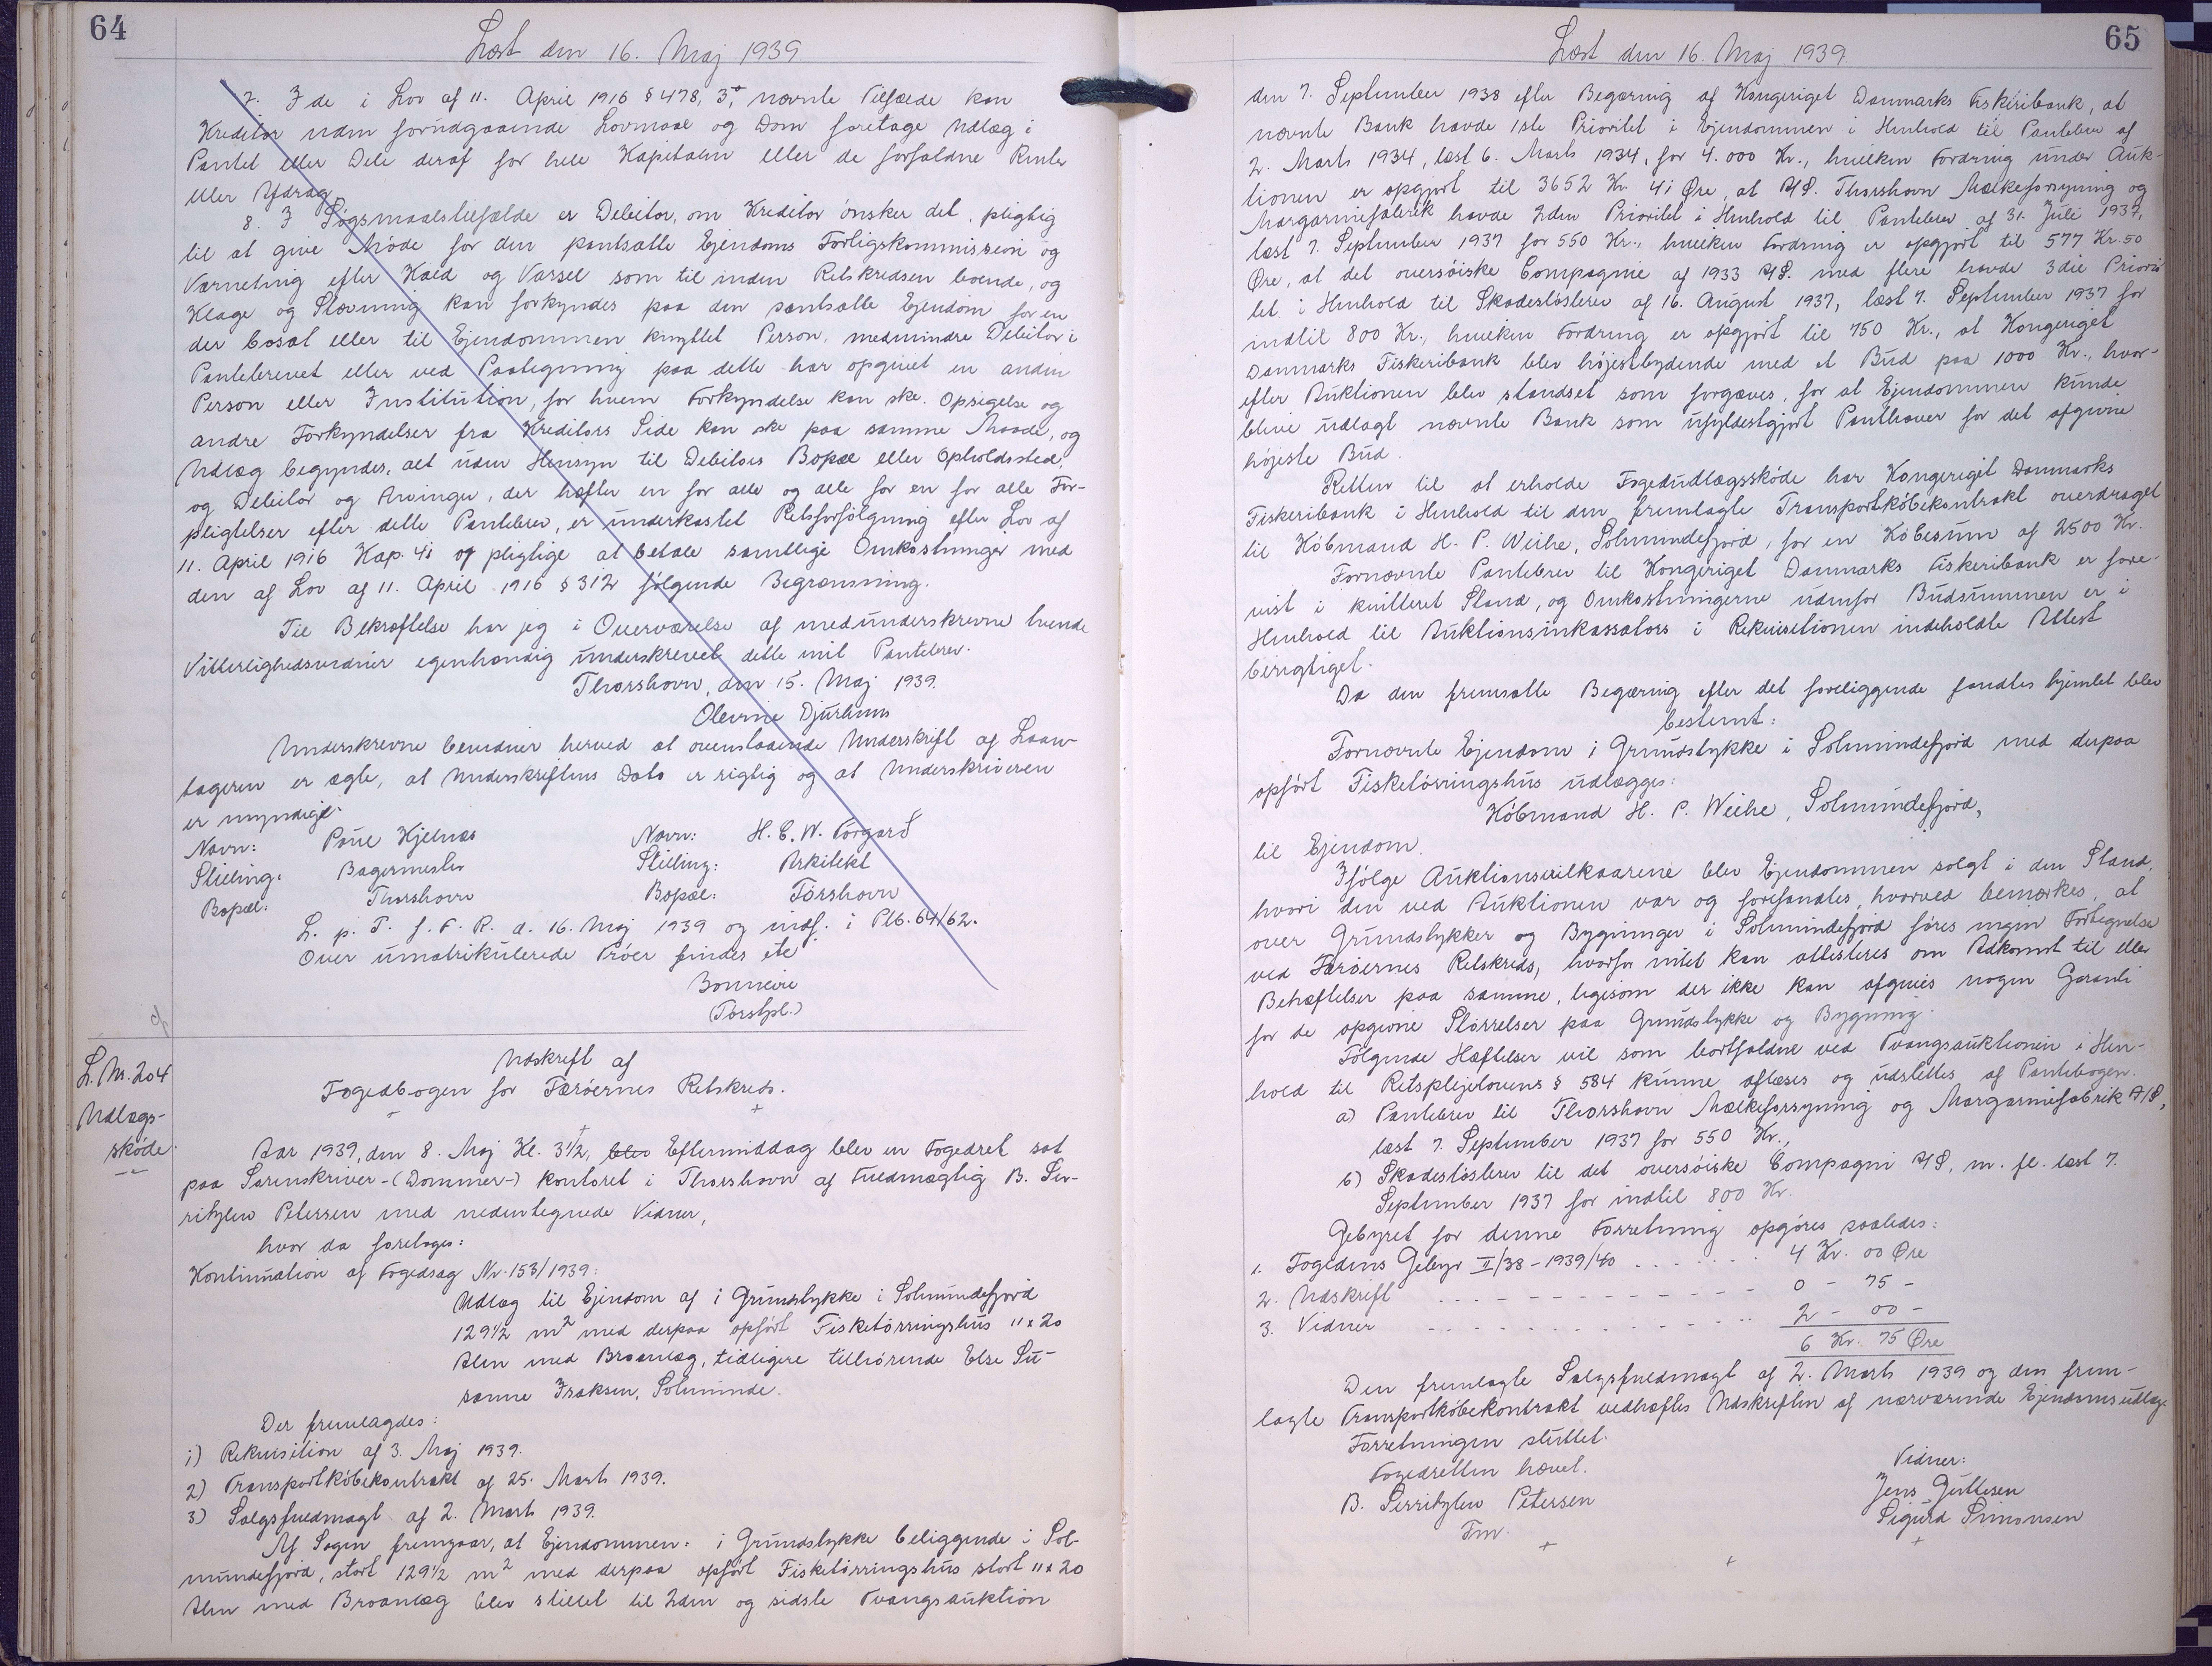 64
Læst den 16. Maj 1939.
7. I de i Lov af 11. April 1916 § 478, 3°, nævnte Tilfælde kan
Kreditor uden forudgaaende Lovmaal og Dom foretage Udlæg i
Pantet eller Dele deraf for hele Kapitalen eller de forfaldne Renter
eller Afdrag.
8. I Søgsmaalstilfælde er Debitor, om Kreditor ønsker det, pligtig
til at give Møde for den pantsatte Ejendoms Forligskommission og
Værneting efter Kald og Varsel som til inden Retskredsen boende, og
Klage og Stævning kan forkyndes paa den pantsatte Ejendom for en
der bosat eller til Ejendommen knyttet Person, medmindre Debitor i
Pantebrevet eller ved Paategning paa dette har opgivet en anden
Person eller Institution, for hvem Forkyndelse kan ske. Opsigelse og
andre Forkyndelser fra Kreditors Side kan ske paa samme Maade, og
Udlæg begyndes, alt uden Hensyn til Debitors Bopæl eller Opholdssted,
og Debitor og Arvinger, der hæfter en for alle og alle for en for alle For-
pligtelser efter dette Pantebrev, er underkastet Retsforfølgning efter Lov af
11. April 1916 Kap. 41 og pligtige at betale samtlige Omkostninger med
den af Lov af 11. April 1916 § 312 følgende Begrænsning.
Til Bekræftelse har jeg i Overværelse af medunderskrevne tvende
Vitterlighedsvidner egenhændig underskrevet dette mit Pantebrev.
Thorshavn, den 15. Maj 1939.
Olevine Djurhuus
Underskrevne bevidner herved at ovenstaaende Underskrift af Laan-
tageren er ægte, at Underskriftens Dato er rigtig og at Underskriveren
er myndig.
Navn: Poul Kjelnæs Navn: H. C. W. Tórgarð
Stilling: Bagermester Stilling: Arkitekt
Bopæl: Thorshavn Bopæl: Tórshavn
L. p. T. f. F. R. d. 16. Maj 1939 og indf. i Ptb. 64/62.
Over umatrikulerede Tróer findes ete
Bonnevie
(Torstpl.)
L. Nr. 204
Udlægs-
skøde.
Udskrift af
Fogedbogen for Færøernes Retskreds.
Aar 1939, den 8. Maj Kl. 3 1/2, blev Eftermiddag blev en Fogedret sat
paa Sorenskriver-(Dommer-)kontoret i Thorshavn af Fuldmægtig B. Ser-
ritzlev Petersen med nedentegnede Vidner,
hvor da foretoges:
Kontinuation af Fogedsag Nr. 153/1939:
Udlæg til Ejendom af 1 Grundstykke i Solmundefjord
129 1/2 m² med derpaa opført Fisketørringshus 11 x 20
Alen med Broanlæg, tidligere tilhørende Else Su-
sanne Isaksen, Solmunde.
Der fremlagdes:
1) Rekvisition af 3. Maj 1939.
2) Transportkøbekontrakt af 25. Marts 1939.
3) Salgsfuldmagt af 2. Marts 1939.
Af Sagen fremgaar, at Ejendommen: 1 Grundstykke beliggende i Sol-
mundefjord, stort 129 1/2 m² med derpaa opført Fisketørringshus stort 11 x 20
Alen med Broanlæg blev stillet til 2den og sidste Tvangsauktion
65
Læst den 16. Maj 1939.
den 7. September 1938 efter Begæring af Kongeriget Danmarks Fiskeribank, at
nævnte Bank havde 1ste Prioritet i Ejendommen i Henhold til Pantebrev af
2. Marts 1934, læst 6. Marts 1934, for 4.000 Kr., hvilken Fordring under Auk-
tionen er opgjort til 3652 Kr. 41 Øre, at A/S. Thorshavn Mælkeforsyning og
Margarinefabrik havde 2den Prioritet i Henhold til Pantebrev af 31. Juli 1937,
læst 7. September 1937 for 550 Kr., hvilken Fordring er opgjort til 577 Kr. 50
Øre, at det oversøiske Compagnie af 1933 A/S. med flere havde 3die Priori-
tet i Henhold til Skadesløsbrev af 16. August 1937, læst 7. September 1937 for
indtil 800 Kr., hvilken Fordring er opgjort til 750 Kr., at Kongeriget
Danmarks Fiskeribank blev højestbydende med et Bud paa 1000 Kr., hvor-
efter Auktionen blev standset som forgæves, for at Ejendommen kunde
blive udlagt nævnte Bank som ufyldestgjort Panthaver for det afgivne
højeste Bud.
Retten til at erholde Fogedudlægsskøde har Kongeriget Danmarks
Fiskeribank i Henhold til den fremlagte Transportkøbekontrakt overdraget
til Købmand H. P. Weihe, Solmundefjord, for en Købesum af 2500 Kr.
Fornævnte Pantebrev til Kongeriget Danmarks Fiskeribank er fore-
vist i kvitteret Stand, og Omkostningerne udenfor Budsummen er i
Henhold til Auktionsinkassators i Rekvisitionen indeholdte Attest
berigtiget.
Da den fremsatte Begæring efter det foreliggende fandtes hjemlet blev
bestemt:
Fornævnte Ejendom 1 Grundstykke i Solmundefjord med derpaa
opført Fisketørringshus udlægges:
Købmand H. P. Weihe, Solmundefjord,
til Ejendom.
Ifølge Auktionsvilkaarene blev Ejendommen solgt i den Stand,
hvori den ved Auktionen var og forefandtes, hvorved bemærkes, at
over Grundstykker og Bygninger i Solmundefjord føres ingen Fortegnelse
ved Færøernes Retskreds, hvorfor intet kan attesteres om Adkomst til eller
Behæftelser paa samme, ligesom der ikke kan afgives nogen Garanti
for de opgivne Størrelser paa Grundstykke og Bygning.
Følgende Hæftelser vil som bortfaldne ved Tvangsauktionen i Hen-
hold til Retsplejelovens § 584 kunne aflæses og udslettes af Pantebogen.
a) Pantebrev til Thorshavn Mælkeforsyning og Margarinefabrik A/S,
læst 7. September 1937 for 550 Kr.,
b) Skadesløsbrev til det oversøiske Compagni A/S, m. fl. læst 7.
September 1937 for indtil 800 Kr.
Gebyret for denne Forretning opgøres saaledes:
1. Fogedens Gebyr II/38 - 1939/40 . . . . . . 4 Kr. 00 Øre
2. Udskrift - - - - - - - - - - - - 0 - 75 -
3. Vidner - - - - - - - - - - - - 2 - 00 -
6 Kr. 75 Øre
Den fremlagte Salgsfuldmagt af 2. Marts 1939 og den frem-
lagte Transportkøbekontrakt vedhæftes Udskriften af nærværende Ejendomsudlæg.
Forretningen sluttet.
Fogedretten hævet.
Vidner:
B. Serritzlev Petersen Jens Guttesen
Fm. Sigurd Simonsen